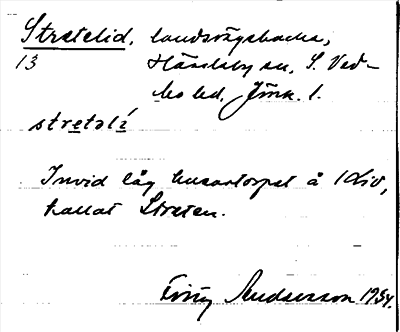 Stretelid, landsvägsbacke,
13 Hässleby sn, S. Ved-
bo hd, Jönk. l.
stretəlí
Invid låg husartorpet å lid,
kallat Streten.
Andersson 1934.